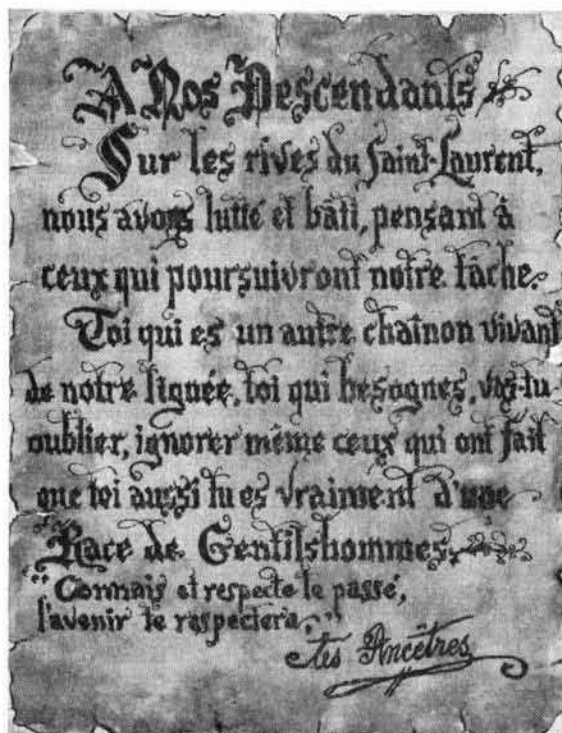 A Nos Descendants
Sur les rives du Saint-Laurent,
nous avons lutté et bâti, pensant à
ceux qui poursuivront notre tâche.
Toi qui es un autre chaînon vivant
de notre lignée, toi qui besognes, vas-tu
oublier, ignorer même ceux qui ont fait
que toi aussi tu es vraiment d'une
Race de Gentilshommes.
"Connais et respecte le passé,
l'avenir te respectera."
tes Ancêtres